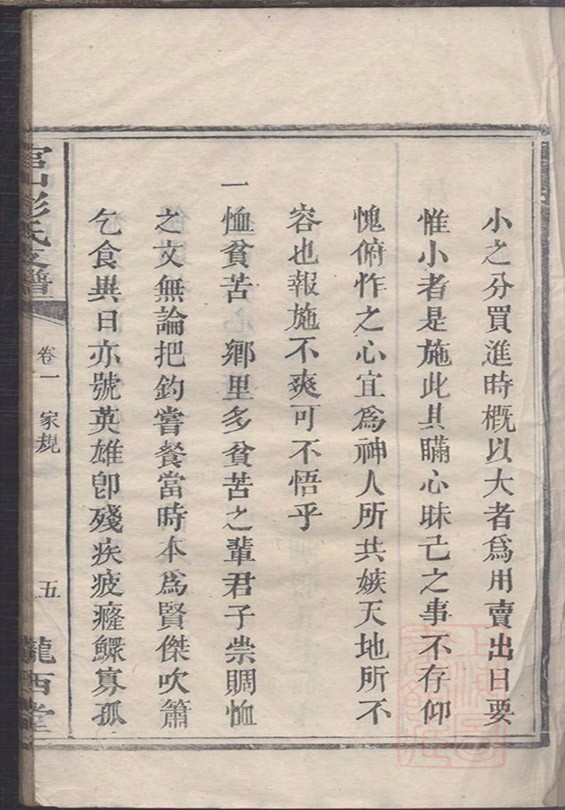 小之分買進時概以大者爲用賣出日要
惟小者是施此具瞞心昧已之事不存仰
愧俯怍之心宜爲神人所共嫉天地所不
容也報施不爽可不悟乎
一恤貧苦 鄉里多貧苦之輩君子崇賙恤
之文無論把釣嘗餐當時本爲賢傑吹簫
乞食異日亦號英雄卽殘疾疲癃鰥寡孤
彭氏支譜
卷一 家規
五
隴西堂